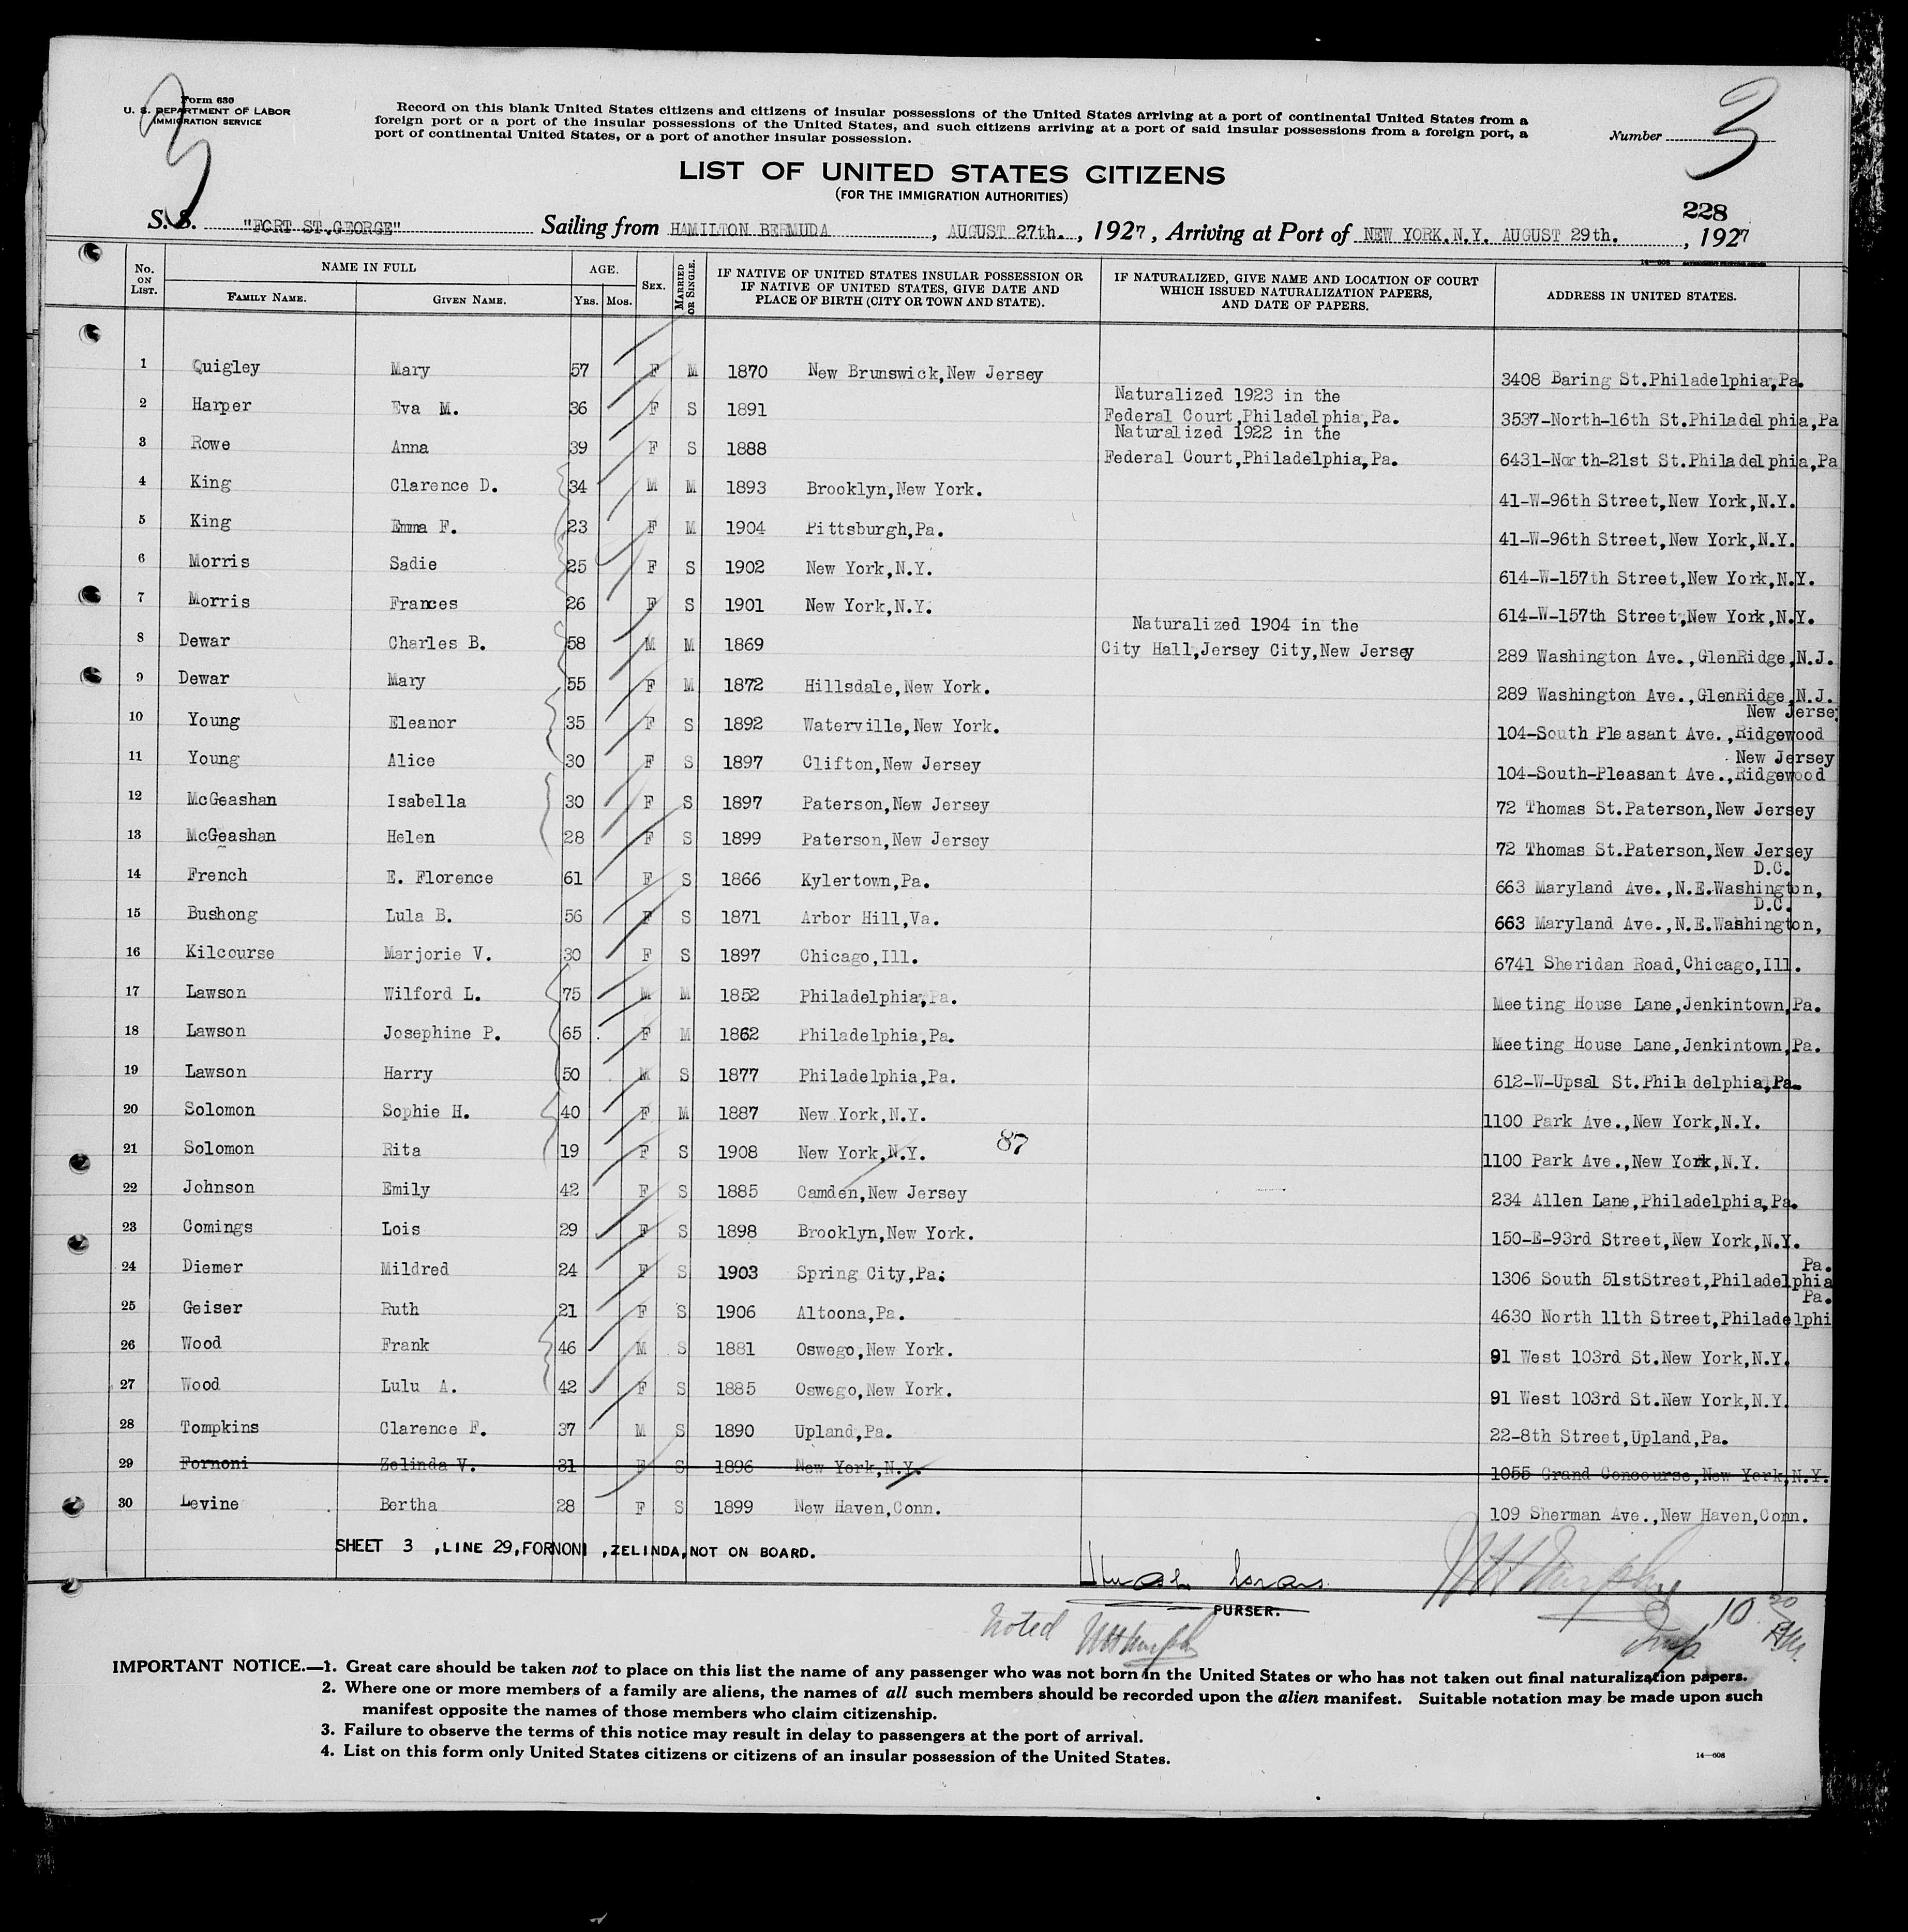 Form 630
U. S. DEPARTMENT OF LABOR
IMMIGRATION SERVICE
3
Record on this blank United States citizens and citizens of insular possessions of the United States arriving at a port of continental United States from a
foreign port or a port of the insular possessions of the United States, and such citizens arriving at a port of said insular possessions from a foreign port, a
port of continental United States, or a port of another insular possession.
Number 3
LIST OF UNITED STATES CITIZENS
(FOR THE IMMIGRATION AUTHORITIES)
228
S. S. "FORT ST.GEORGE" Sailing from HAMILTON BERMUDA, AUGUST 27th., 1927, Arriving at Port of NEW YORK.N.Y. AUGUST 29th., 1927
14—608
No. ON LIST. NAME IN FULL FAMILY NAME. GIVEN NAME. AGE. YRS. MOS. SEX. MARRIED OR SINGLE. IF NATIVE OF UNITED STATES INSULAR POSSESSION OR IF NATIVE OF UNITED STATES, GIVE DATE AND PLACE OF BIRTH (CITY OR TOWN AND STATE). IF NATURALIZED, GIVE NAME AND LOCATION OF COURT WHICH ISSUED NATURALIZATION PAPERS, AND DATE OF PAPERS. ADDRESS IN UNITED STATES.
1 Quigley Mary 57 F M 1870 New Brunswick,New Jersey 3408 Baring St.Philadelphia,Pa.
2 Harper Eva M. 36 F S 1891 Naturalized 1923 in the Federal Court,Philadelphia,Pa. 3537-North-16th St.Philadelphia,Pa
3 Rowe Anna 39 F S 1888 Naturalized 1922 in the Federal Court,Philadelphia,Pa. 6431-North-21st St.Philadelphia,Pa
4 King Clarence D. 34 M M 1893 Brooklyn,New York. 41-W-96th Street,New York,N.Y.
5 King Emma F. 23 F M 1904 Pittsburgh,Pa. 41-W-96th Street,New York,N.Y.
6 Morris Sadie 25 F S 1902 New York,N.Y. 614-W-157th Street,New York,N.Y.
7 Morris Frances 26 F S 1901 New York,N.Y. 614-W-157th Street,New York,N.Y.
8 Dewar Charles B. 58 M M 1869 Naturalized 1904 in the City Hall,Jersey City,New Jersey 289 Washington Ave.,GlenRidge,N.J.
9 Dewar Mary 55 F M 1872 Hillsdale,New York. 289 Washington Ave.,GlenRidge,N.J.
10 Young Eleanor 35 F S 1892 Waterville,New York. 104-South Pleasant Ave.,Ridgewood New Jersey
11 Young Alice 30 F S 1897 Clifton,New Jersey 104-South-Pleasant Ave.,Ridgewood New Jersey
12 McGeashan Isabella 30 F S 1897 Paterson,New Jersey 72 Thomas St.Paterson,New Jersey
13 McGeashan Helen 28 F S 1899 Paterson,New Jersey 72 Thomas St.Paterson,New Jersey
14 French E. Florence 61 F S 1866 Kylertown,Pa. 663 Maryland Ave.,N.E.Washington, D.C.
15 Bushong Lula B. 56 F S 1871 Arbor Hill,Va. 663 Maryland Ave.,N.E.Washington, D.C.
16 Kilcourse Marjorie V. 30 F S 1897 Chicago,Ill. 6741 Sheridan Road,Chicago,Ill.
17 Lawson Wilford L. 75 M M 1852 Philadelphia,Pa. Meeting House Lane,Jenkintown,Pa.
18 Lawson Josephine P. 65 F M 1862 Philadelphia,Pa. Meeting House Lane,Jenkintown,Pa.
19 Lawson Harry 50 M S 1877 Philadelphia,Pa. 612-W-Upsal St.Philadelphia,Pa.
20 Solomon Sophie H. 40 F M 1887 New York,N.Y. 1100 Park Ave.,New York,N.Y.
21 Solomon Rita 19 F S 1908 New York,N.Y. 87 1100 Park Ave.,New York,N.Y.
22 Johnson Emily 42 F S 1885 Camden,New Jersey 234 Allen Lane,Philadelphia,Pa.
23 Comings Lois 29 F S 1898 Brooklyn,New York. 150-E-93rd Street,New York,N.Y.
24 Diemer Mildred 24 F S 1903 Spring City,Pa. 1306 South 51stStreet,Philadelphia Pa.
25 Geiser Ruth 21 F S 1906 Altoona,Pa. 4630 North 11th Street,Philadelphi Pa.
26 Wood Frank 46 M S 1881 Oswego,New York. 91 West 103rd St.New York,N.Y.
27 Wood Lulu A. 42 F S 1885 Oswego,New York. 91 West 103rd St.New York,N.Y.
28 Tompkins Clarence F. 37 M S 1890 Upland,Pa. 22-8th Street,Upland,Pa.
29 Fornoni Zelinda V. 31 F S 1896 New York,N.Y. 1055 Grand Concourse,New York,N.Y.
30 Levine Bertha 28 F S 1899 New Haven,Conn. 109 Sherman Ave.,New Haven,Conn.
SHEET 3 ,LINE 29,FORNONI ,ZELINDA,NOT ON BOARD.
PURSER.
Noted
10 20 AM.
IMPORTANT NOTICE.—1. Great care should be taken not to place on this list the name of any passenger who was not born in the United States or who has not taken out final naturalization papers.
2. Where one or more members of a family are aliens, the names of all such members should be recorded upon the alien manifest. Suitable notation may be made upon such
manifest opposite the names of those members who claim citizenship.
3. Failure to observe the terms of this notice may result in delay to passengers at the port of arrival.
4. List on this form only United States citizens or citizens of an insular possession of the United States.
14—608